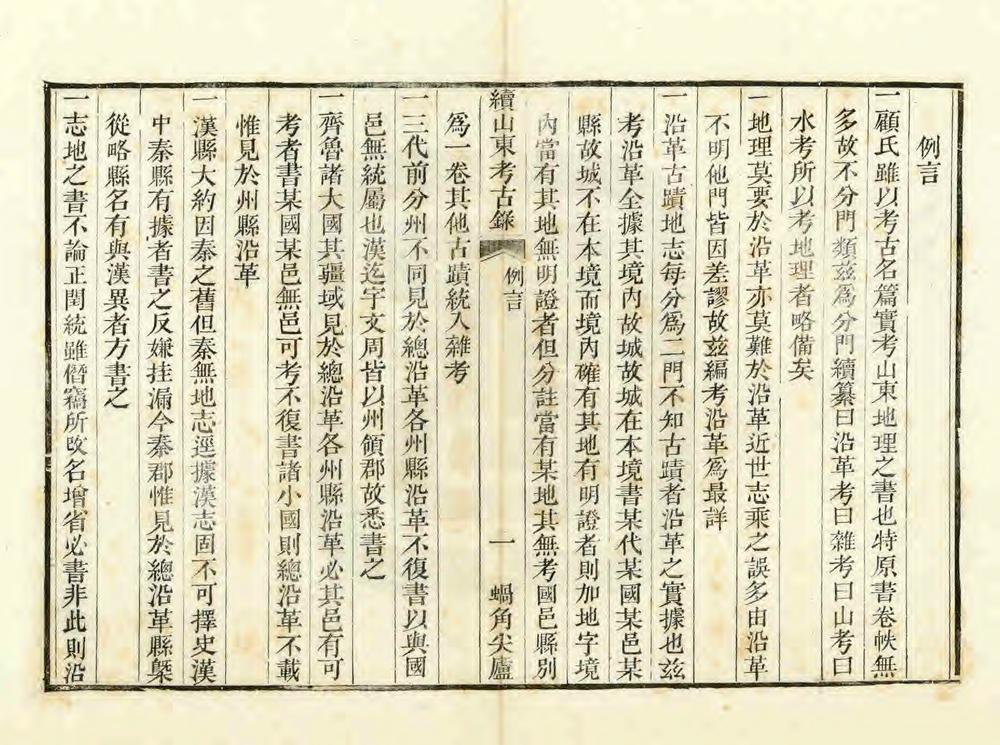 例言
一顧氏雖以考古名篇實考山東地理之書也特原書卷帙無
多故不分門類茲爲分門續纂曰沿革考曰雜考曰山考曰
水考所以考地理者略備矣
一地理莫要於沿革亦莫難於沿革近世志乘之誤多由沿革
不明他門皆因差謬故茲編考沿革爲最詳
一沿革古蹟地志每分爲二門不知古蹟者沿革之實據也茲
考沿革全據其境內故城故城在本境書某代某國某邑某
縣故城不在本境而境內確有其地有明證者則加地字境
內當有其地無明證者但分註當有某地其無考國邑縣別
續山東考古錄 例言 一 蝸角尖廬
爲一卷其他古蹟統入雜考
一三代前分州不同見於總沿革各州縣沿革不復書以與國
邑無統屬也漢迄宇文周皆以州領郡故悉書之
一齊魯諸大國其疆域見於總沿革各州縣沿革必其邑有可
考者書某國某邑無邑可考不復書諸小國則總沿革不載
惟見於州縣沿革
一漢縣大約因秦之舊但秦無地志逕據漢志固不可擇史漢
中秦縣有據者書之反嫌挂漏今秦郡惟見於總沿革縣槩
從略縣名有與漢異者方書之
一志地之書不論正閏統雖僭竊所改名增省必書非此則沿